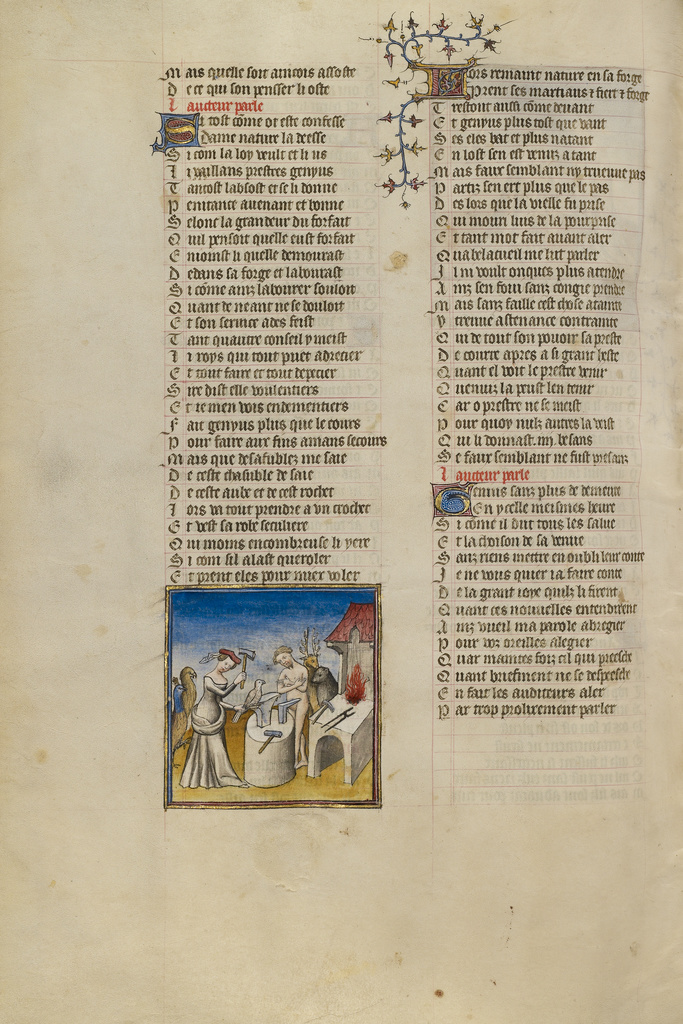 Mais quelle soit aincois assoste
De ce qui son penser li oste
Laucteur parle
Si tost come ot este confesse
Dame nature la deesse
Si com la loy veult et li us
Li vaillans prestres genyus
Tantost labsost et se li donne
Penitance auenant et bonne
Selonc la grandeur du forfait
Quil pensoit quelle eust forfait
Enioinst li quelle demourast
Dedans sa forge et labourast
Si come ainz labourer souloit
Quant de neant ne se douloit
Et son seruice ades feist
Tant quautre conseil y meist
Li roys qui tout puet adrecier
Et tout faire et tout depecier
Sire dist elle voulentiers
Et ie men vois endementiers
Fait genyus plus que le cours
Pour faire aux fins amans secours
Mais que desafublez me saie
De ceste chasuble de saie
De ceste aube et de cest rochet
Lors va tout prendre a vn crochet
Et vest sa robe seculiere
Qui moins encombreuse li yere
Si com sil alast queroler
Et prent eles pour miex voler
Lors remaint nature en sa forge
Prent ses martiaus & fiert & forge
Trestout aussi come deuant
Et genyus plus tost que vant
Ses eles bat et plus natant
En lost sen est venuz a tant
Mais faux semblant ny trueuue pas
Partiz sen ert plus que le pas
Des lors que la vielle fu prise
Qui mouuri luis de la pourprise
Et tant mot fait auant aler
Qua belacueil me lut parler
Il ni voult onques plus atendre
Ainz sen foui sanz congie prendre
Mais sanz faille cest chose atainte
Y treuue astenance contrainte
Qui de tout son pouoir sapreste
De courre apres a si grant heste
Quant el voit le prestre venir
Quenuiz la peust len tenir
Car o prestre ne se meist
Pour quoy nulz autres la veist
Qui li donnast .iiij. besans
Se faux semblant ne fust presanz
Laucteur parle
Genius sanz plus de demeure
En ycelle meismes heure
Si come il dut tous les salue
Et lachoison de sa venue
Sanz riens mettre en oubli leur conte
Je ne vous quier ia faire conte
De la grant ioye quilz li firent
Quant ces nouuelles entendirent
Ainz vueil ma parole abregier
Pour voz oreilles alegier
Quar maintes foiz cil qui preesche
Quant briefment ne se despeesche
En fait les auditeurs aler
Par trop prolixement parler